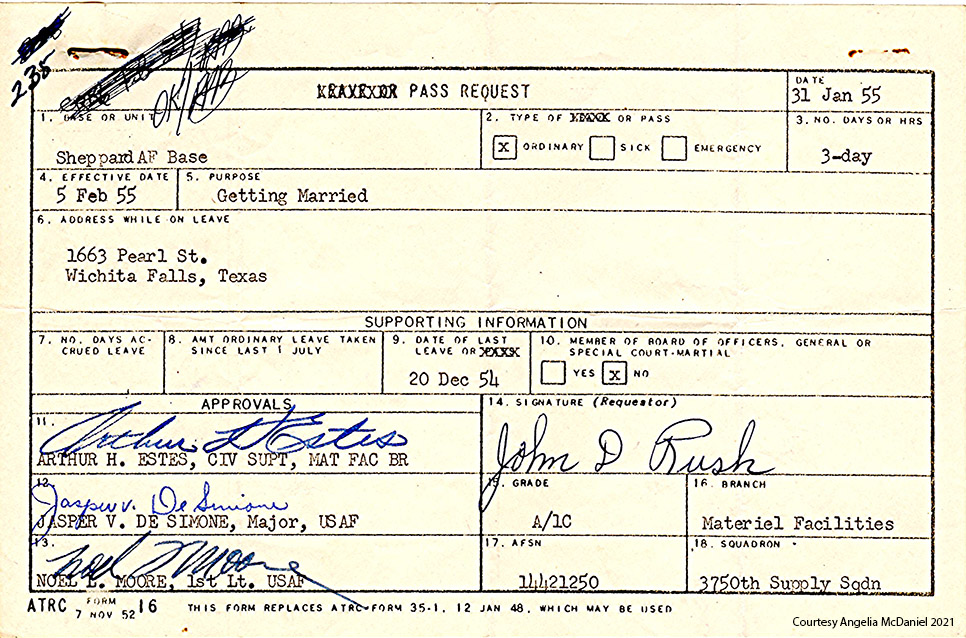 235
OK/
PASS REQUEST
DATE
31 Jan 55
1. BASE OR UNIT
Sheppard AF Base
2. TYPE OF XXXXX OR PASS
X ORDINARY SICK EMERGENCY
3. NO. DAYS OR HRS
3-day
4. EFFECTIVE DATE
5 Feb 55
5. PURPOSE
Getting Married
6. ADDRESS WHILE ON LEAVE
1663 Pearl St.
Wichita Falls, Texas
SUPPORTING INFORMATION
7. NO. DAYS AC-
CRUED LEAVE
8. AMT ORDINARY LEAVE TAKEN
SINCE LAST 1 JULY
9. DATE OF LAST
LEAVE OR XXXX
20 Dec 54
10. MEMBER OF BOARD OF OFFICERS, GENERAL OR
SPECIAL COURT-MARTIAL
YES X NO
APPROVALS
11.
Arthur H Estes
ARTHUR H. ESTES, CIV SUPT, MAT FAC BR
12.
Jasper V. De Simone
JASPER V. DE SIMONE, Major, USAF
13.
Noel L Moore
NOEL L. MOORE, 1st Lt. USAF
14. SIGNATURE (Requestor)
John D Rush
15. GRADE
A/1C
16. BRANCH
Materiel Facilities
17. AFSN
14421250
18. SQUADRON
3750th Supply Sqdn
ATRC FORM 16
7 NOV 52
THIS FORM REPLACES ATRC FORM 35-1, 12 JAN 48, WHICH MAY BE USED
Courtesy Angelia McDaniel 2021